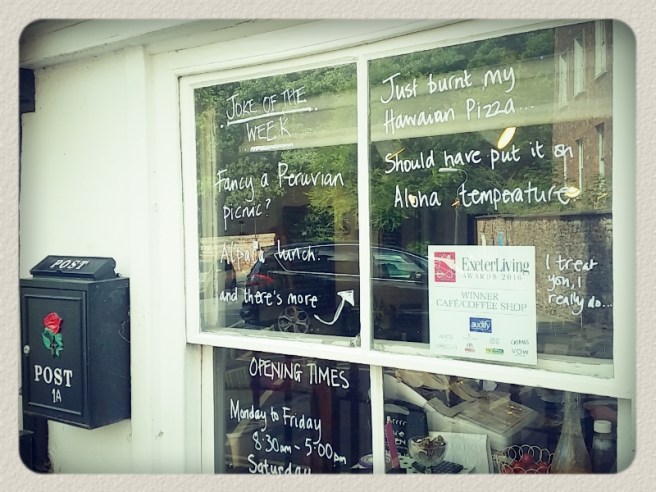 JOKE OF THE
WEEK
Fancy a Peruvian
picnic?
Alpaca lunch.
and there's more
Just burnt my
Hawaiian Pizza...
Should have put it on
Aloha temperature.
I treat
you, I
really do...
ExeterLiving
AWARDS 2016
WINNER
CAFÉ/COFFEE SHOP
audify
OPENING TIMES
Monday to Friday
8:30am - 5:00pm
Saturday
POST
POST
1A